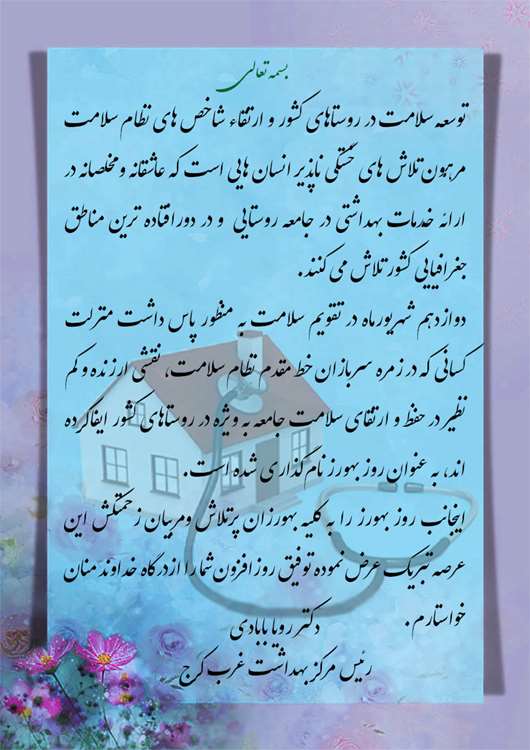 بسمه تعالی
توسعه سلامت در روستاهای کشور و ارتقاء شاخص های نظام سلامت
مرهون تلاش های خستگی ناپذیر انسان هایی است که عاشقانه ومخلصانه در
ارائه خدمات بهداشتی در جامعه روستایی و در دورافتاده ترین مناطق
جغرافیایی کشور تلاش می کنند.
دوازدهم شهریورماه در تقویم سلامت به منظور پاس داشت منزلت
کسانی که در زمره سربازان خط مقدم نظام سلامت، نقشی ارزنده و کم
نظیر در حفظ و ارتقای سلامت جامعه به ویژه در روستاهای کشور ایفا کرده
اند، به عنوان روز بهورز نام گذاری شده است.
اینجانب روز بهورز را به کلیه بهورزان پرتلاش ومربیان زحمتکش این
عرصه تبریک عرض نموده توفیق روز افزون شما را از درگاه خداوند منان
خواستارم.
دکتر رویا بابادی
رئیس مرکز بهداشت غرب کرج